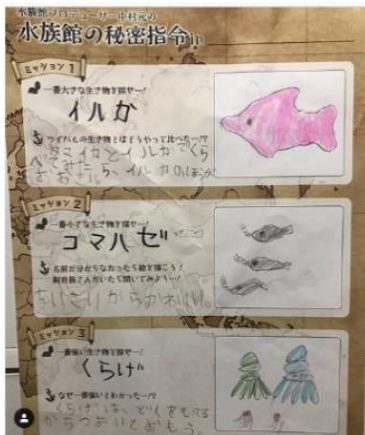 水族館プロデューサー中村元の
水族館の秘密指令in
ミッション1
一番大きな生き物を探せー!
イルカ
ライバルの生き物とはどうやって比べた…!?
イルカでくら
べてみたら、イルカのほうが
おおきい
ミッション2
一番小さな生き物を探せー!
コマハゼ
名前が分からなかったら絵を描こう!
飼育員さんがいたら聞いてみよう…!
ちいさいからかわいい。
ミッション3
一番強い生き物を探せー!
くらげ
なぜ一番強いとわかった…!?
くらげは、どくをもってる
からつよいとおもう。